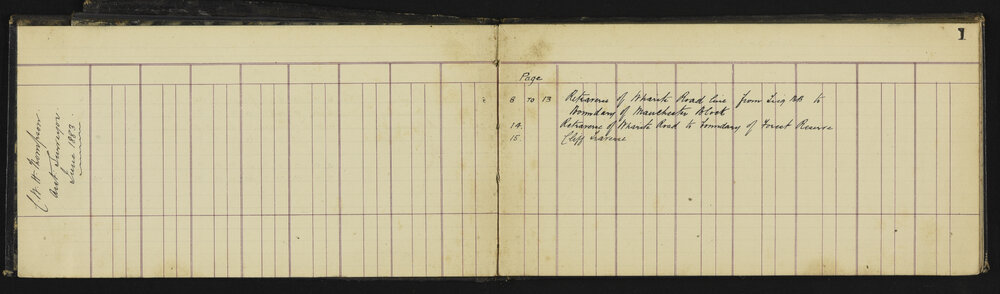 W. H. Thompson
Asst Surveyor
June 1883
1
Page
8 TO 13 Retraverse of Wharite Road line from Trig BB to
Boundary of Manchester Block
14. Retraverse of Wharite Road to boundary of Forest Reserve
15. Cliff Traverse